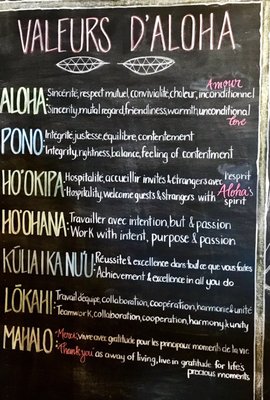 VALEURS D'ALOHA
Amour
ALOHA: Sincérité, respect mutuel, convivialité, chaleur, inconditionnel
Sincerity, mutual regard, friendliness, warmth, unconditional
love
PONO: Intégrité, justesse, équilibre, contentement
Integrity, rightness, balance, feeling of contentment
HO'OKIPA: Hospitalité, accueillir invités & étrangers avec l'esprit
Hospitality, welcome guests & strangers with Aloha's
spirit
HO'OHANA: Travailler avec intention, but & passion
Work with intent, purpose & passion
KŪLIA I KA NU'U: Réussite & excellence dans tout ce que vous faites
Achievement & excellence in all you do
LŌKAHI: Travail d'équipe, collaboration, coopération, harmonie & unité
Teamwork, collaboration, cooperation, harmony & unity
MAHALO: Merci, vivre avec gratitude pour les principaux moments de la vie
Thank you as a way of living, live in gratitude for life's
precious moments